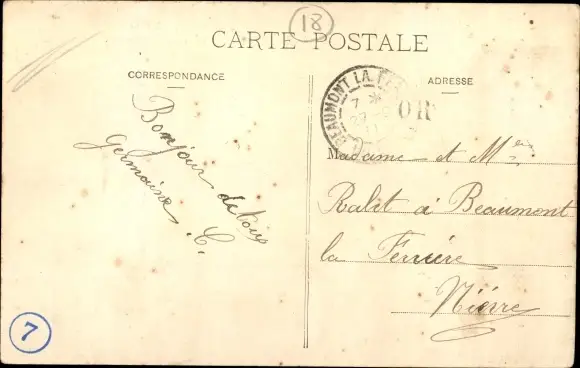 18
CARTE POSTALE
CORRESPONDANCE
ADRESSE
BEAUMONT LA
7 *
27
11
OR
Bonjour de tous
Germaine C.
Madame et Melle
Ralet à Beaumont
la Ferrière
Nièvre
7